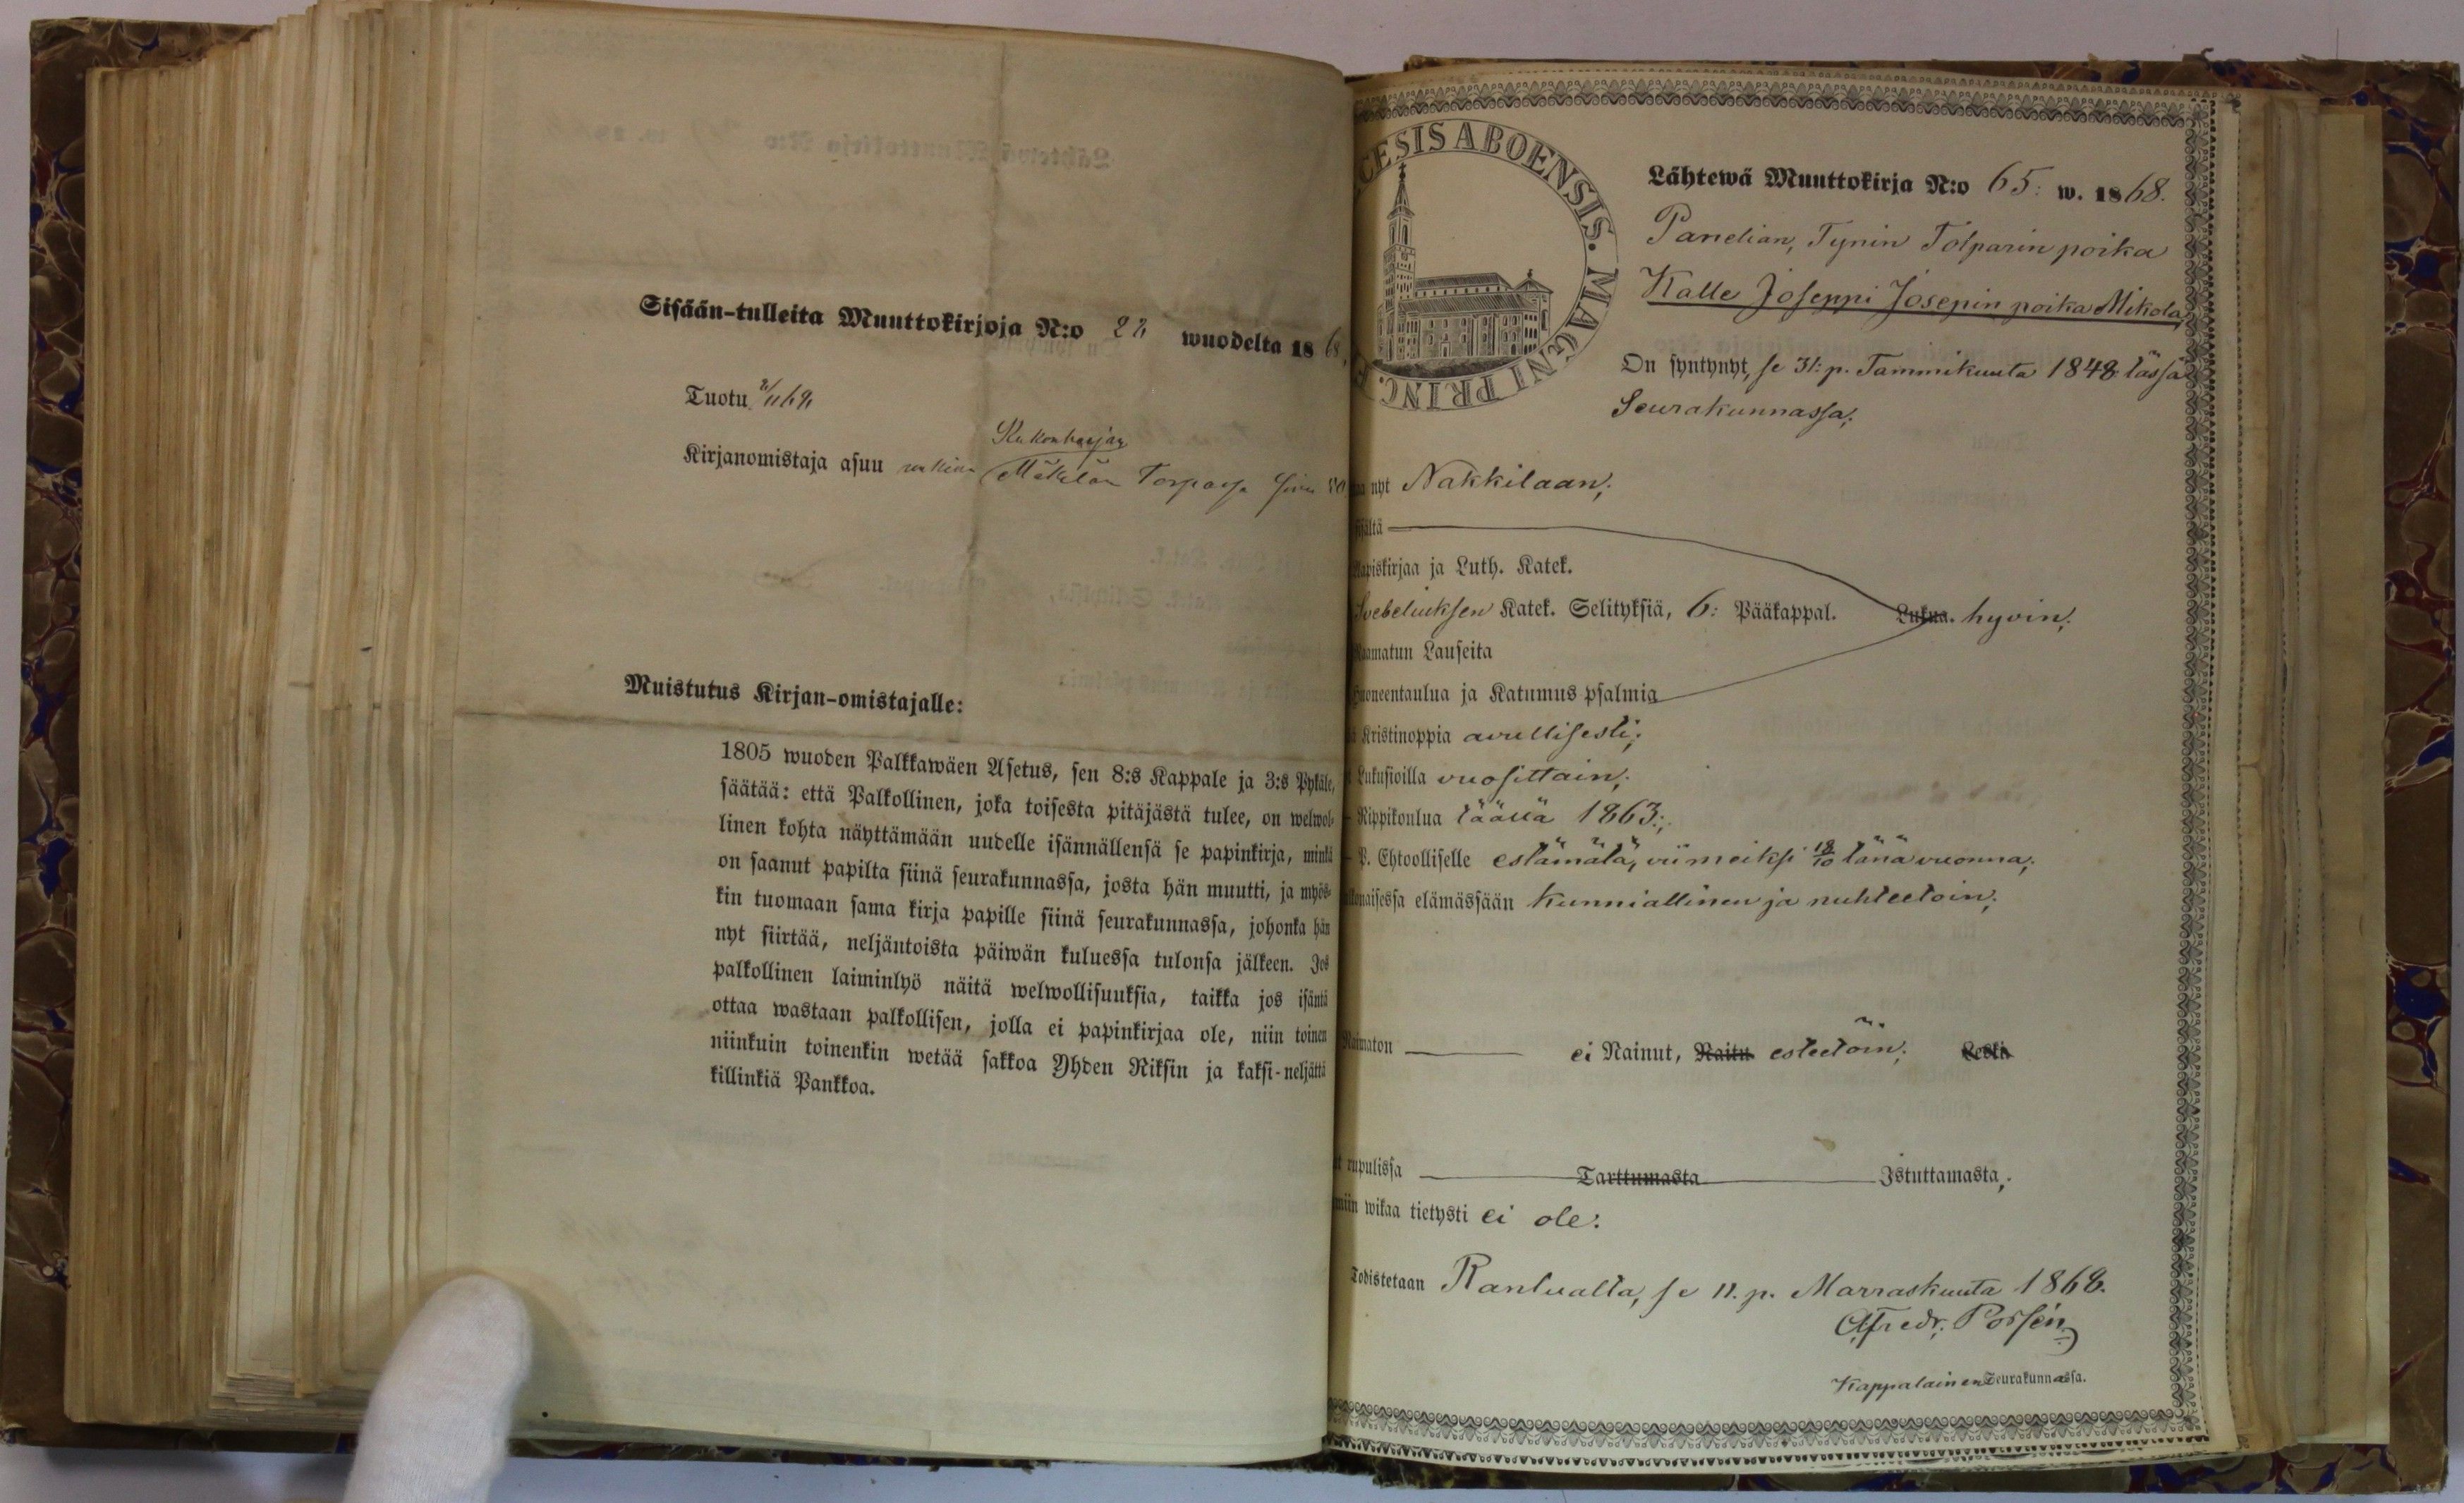 Sisään-tulleita Muuttokirjoja N:o 22 wuodelta 1868,
Tuotu
Kukonharjan
Kirjanomistaja asuu Mäkelän Torpassa
Muistutus Kirjan-omistajalle:
1805 wuoden Palkkawäen Asetus, sen 8:s Kappale ja 3:s Pykäle,
säätää: että Palkollinen, joka toisesta pitäjästä tulee, on welwol-
linen kohta näyttämään uudelle isännällensä se papinkirja, minkä
on saanut papilta siinä seurakunnassa, josta hän muutti, ja myös-
kin tuomaan sama kirja papille siinä seurakunnassa, johonka hän
nyt siirtää, neljäntoista päiwän kuluessa tulonsa jälkeen. Jos
palkollinen laiminlyö näitä welwollisuuksia, taikka jos isäntä
ottaa wastaan palkollisen, jolla ei papinkirjaa ole, niin toinen
niinkuin toinenkin wetää sakkoa Yhden Riksin ja kaksi-neljättä
killinkiä Pankkoa.
CESIS ABOENSIS. MAGNI PRINC. F
Lähtewä Muuttokirja N:o 65: w. 1868.
Panelian, Tynin Torparin poika
Kalle Joseppi Josepin poika Mikola,
On syntynyt, se 31: p. Tammikuuta 1848 tässä
Seurakunnassa;
nyt Nakkilaan;
sältä
Aapiskirjaa ja Luth. Katek.
Svebeliuksen Katek. Selityksiä, 6: Pääkappal. Lukua. hyvin;
Raamatun Lauseita
Huoneentaulua ja Katumus psalmia
Kristinoppia avullisesti;
Lukusioilla vuosittain;
Rippikoulua täällä 1863:;
P. Ehtoolliselle estämätä, viimeiksi 18/10 tänä vuonna;
naisessa elämässään kunniallinen ja nuhteetoin;
Naimaton ei Nainut, Naitu esteetöin; Leski
rupulissa Tarttumasta Istuttamasta,
wikaa tietysti ei ole:
Todistetaan Kantvalla, se 11. p. Marraskuuta 1868.
Afredr. Porsén
Kappalainen Seurakunnassa.